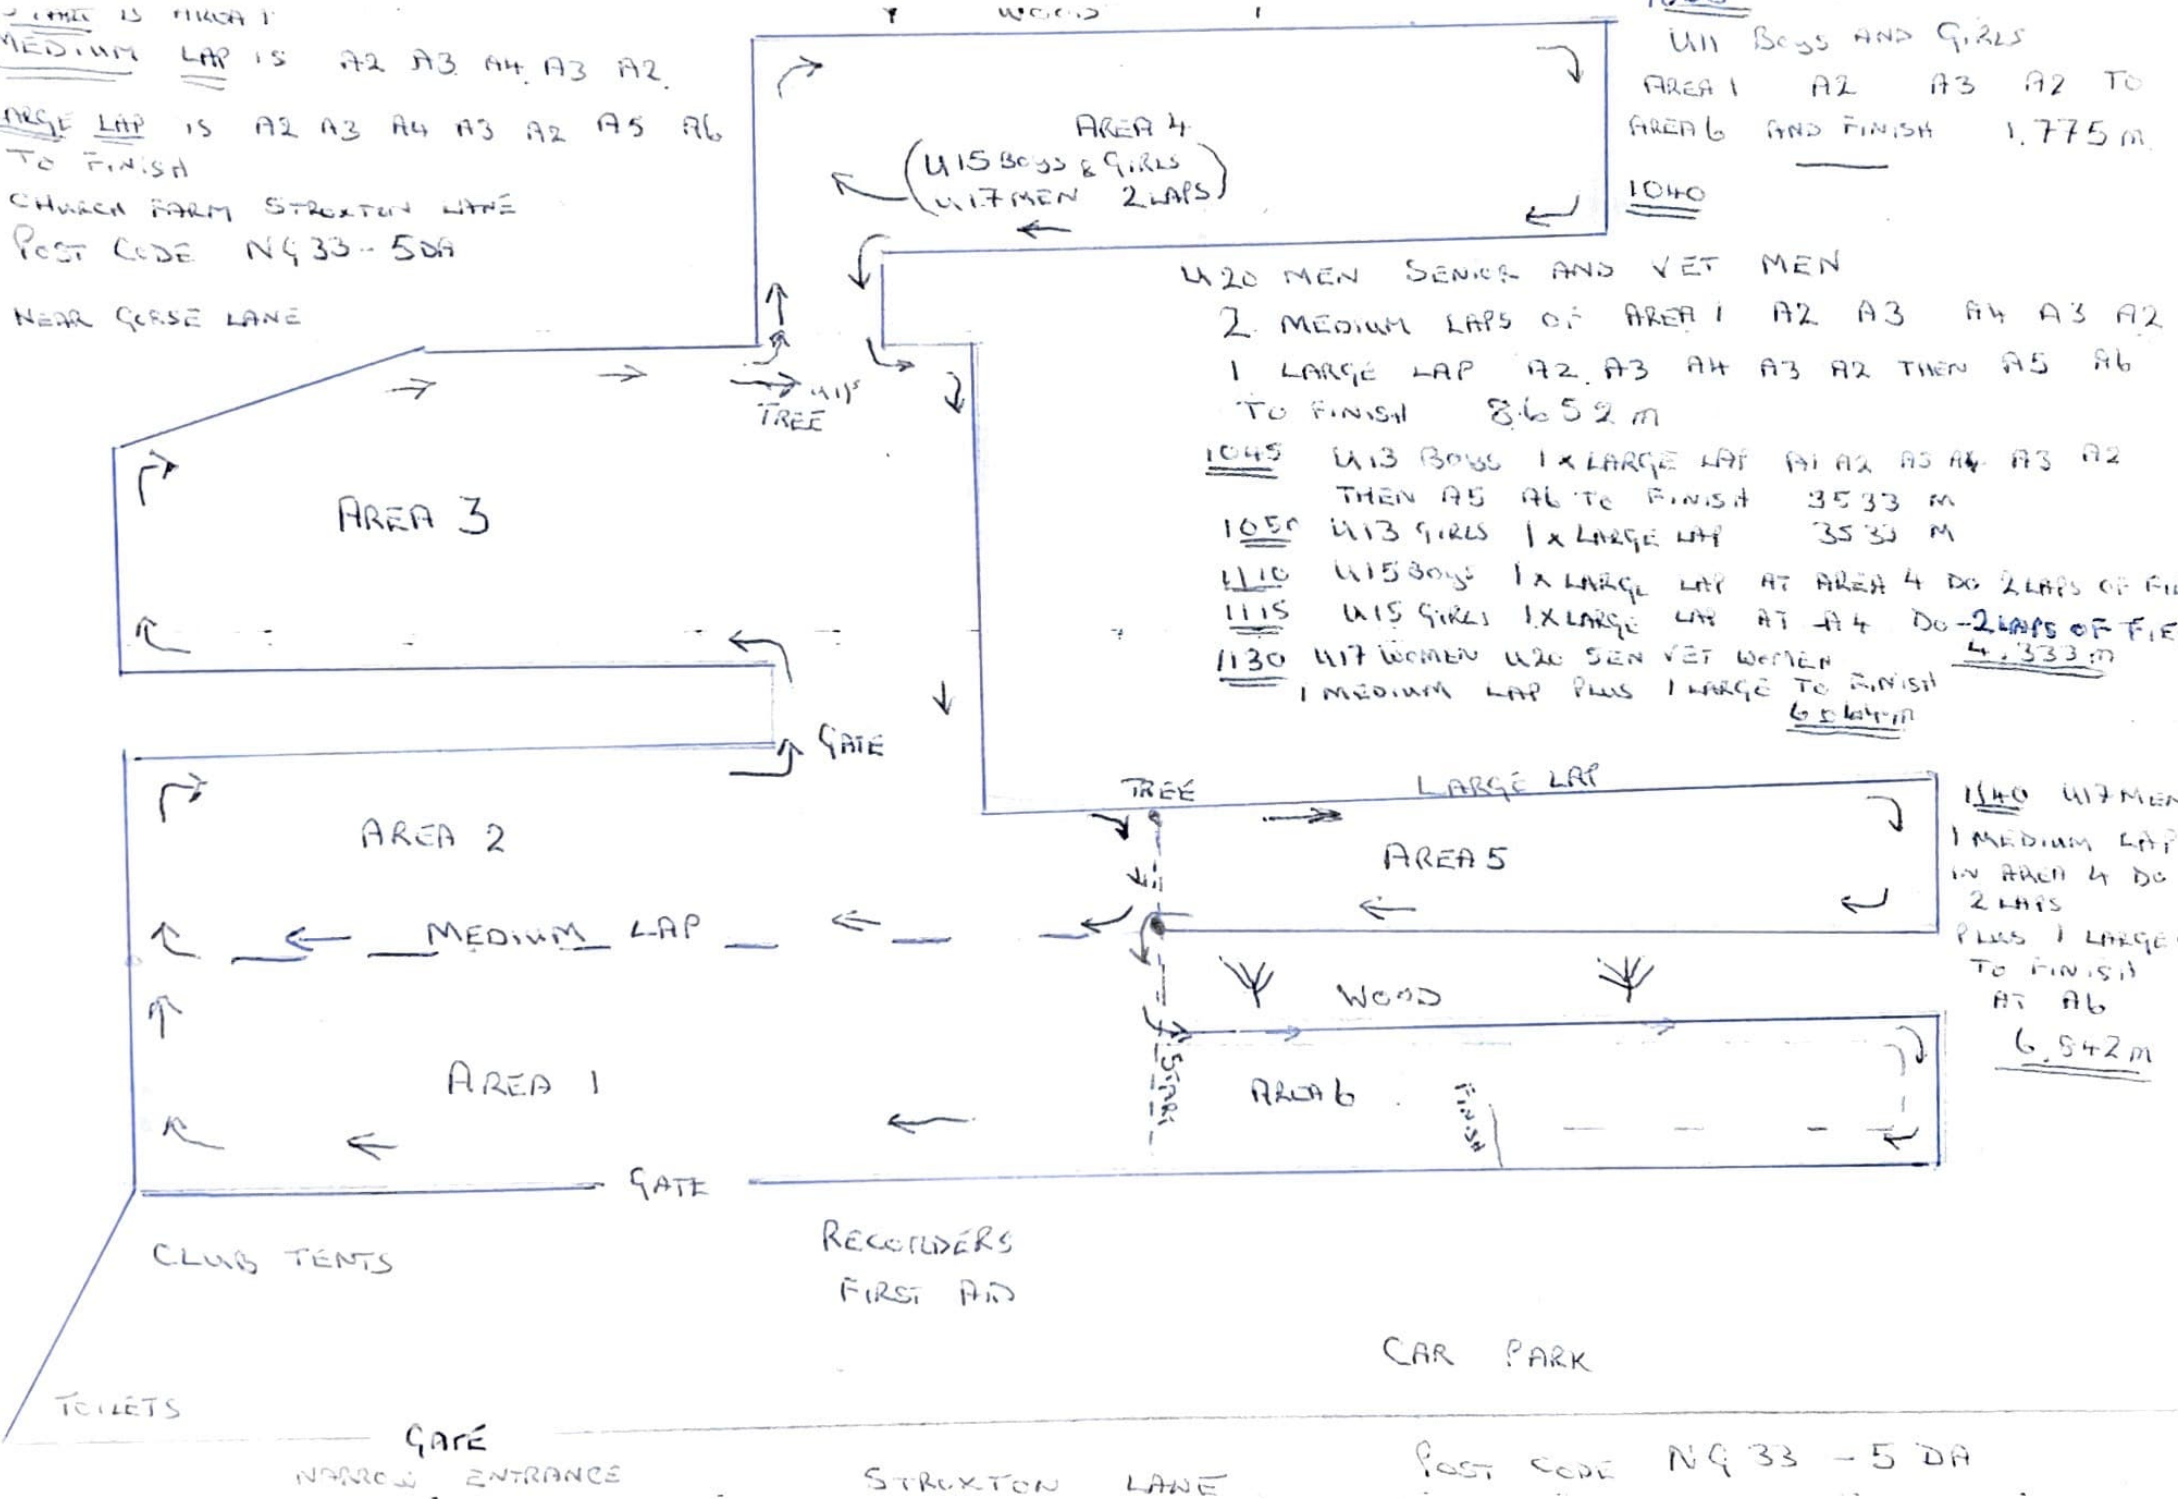 START IS AREA 1
MEDIUM LAP IS A2 A3 A4 A3 A2
LARGE LAP IS A2 A3 A4 A3 A2 A5 A6
TO FINISH
CHURCH FARM STROXTON LANE
POST CODE NG33-5DA
NEAR GORSE LANE
WOOD
U11 Boys AND GIRLS
AREA 1 A2 A3 A2 TO
AREA 6 AND FINISH 1.775 m
1040
U20 MEN SENIOR AND VET MEN
2 MEDIUM LAPS OF AREA 1 A2 A3 A4 A3 A2
1 LARGE LAP A2 A3 A4 A3 A2 THEN A5 A6
TO FINISH 8.652 m
1045 U13 Boys 1 x LARGE LAP A1 A2 A3 A4 A3 A2
THEN A5 A6 TO FINISH 3533 M
1050 U13 GIRLS 1 x LARGE LAP 3533 M
1110 U15 Boys 1 x LARGE LAP AT AREA 4 DO 2 LAPS OF
1115 U15 GIRLS 1 x LARGE LAP AT A4 DO-2 LAPS OF
4.333m
1130 U17 WOMEN U20 SEN VET WOMEN
1 MEDIUM LAP PLUS 1 LARGE TO FINISH
1140 U17 MEN
1 MEDIUM LAP
IN AREA 4 DO
2 LAPS
PLUS 1 LARGE
TO FINISH
AT A6
6.542m
AREA 4
(U15 Boys & GIRLS
U17 MEN 2 LAPS)
U11s
TREE
AREA 3
GATE
AREA 2
TREE
LARGE LAP
AREA 5
MEDIUM LAP
WOOD
AREA 1
START
AREA 6
FINISH
GATE
CLUB TENTS
RECORDERS
FIRST AID
CAR PARK
TOILETS
GATE
NARROW ENTRANCE
STROXTON LANE
POST CODE NG33-5DA